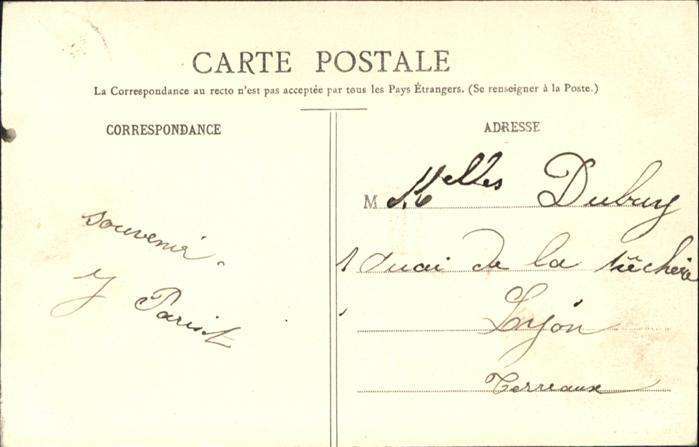 CARTE POSTALE
La Correspondance au recto n'est pas acceptée par tous les Pays Étrangers. (Se renseigner à la Poste.)
CORRESPONDANCE
souvenir
J Parisot
ADRESSE
M Melles Dubuy
1 quai de la Pêcherie
Lyon
Terreaux